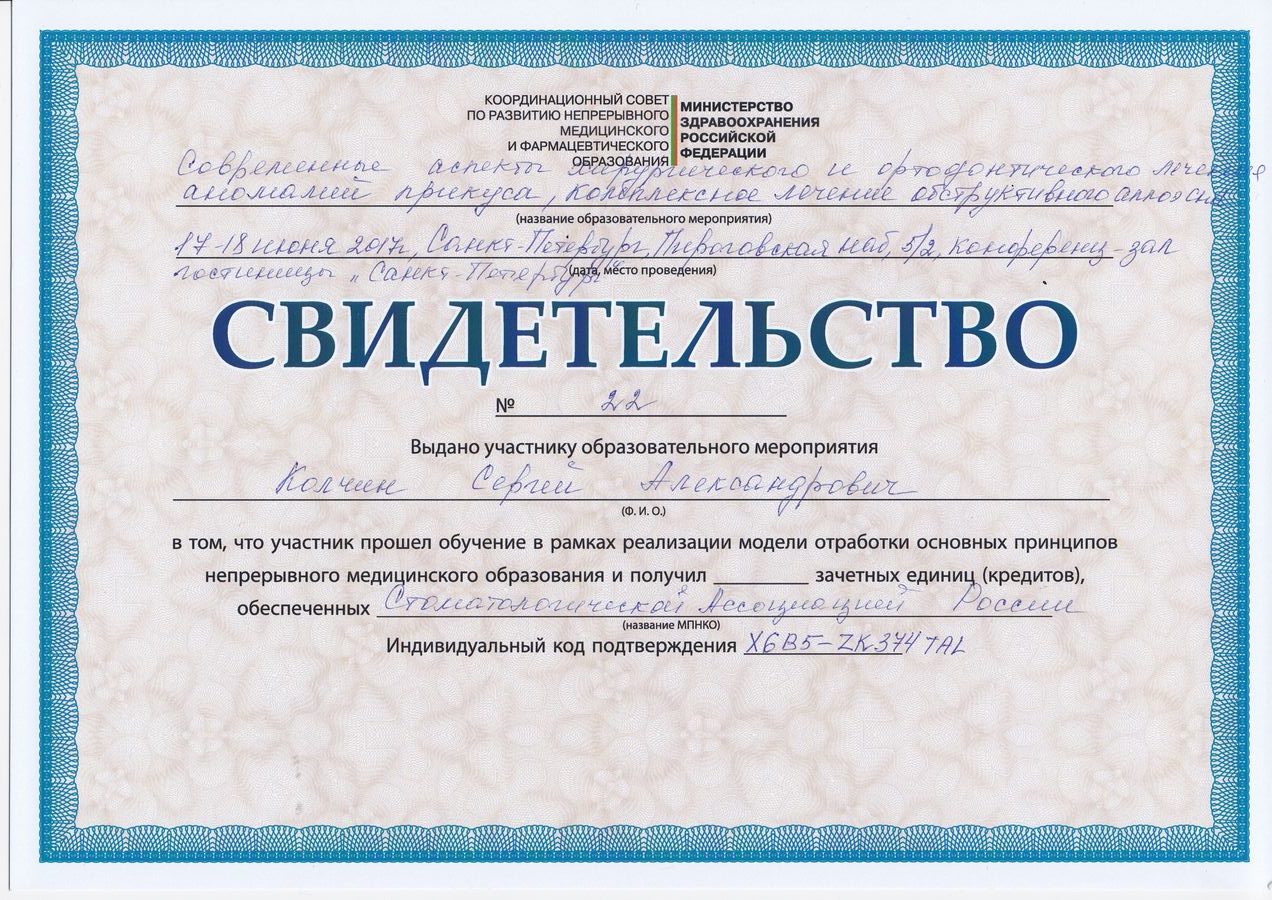 КООРДИНАЦИОННЫЙ СОВЕТ
ПО РАЗВИТИЮ НЕПРЕРЫВНОГО
МЕДИЦИНСКОГО
И ФАРМАЦЕВТИЧЕСКОГО
ОБРАЗОВАНИЯ
МИНИСТЕРСТВО
ЗДРАВООХРАНЕНИЯ
РОССИЙСКОЙ
ФЕДЕРАЦИИ
Современные аспекты хирургического и ортодонтического лечения
аномалий прикуса, комплексное лечение обструктивного апноэ сна
(название образовательного мероприятия)
17-18 июня 2017г, Санкт-Петербург, Пироговская наб, 5/2, конференц-зал
гостиницы "Санкт-Петербург"
(дата, место проведения)
СВИДЕТЕЛЬСТВО
№ 22
Выдано участнику образовательного мероприятия
Колчин Сергей Александрович
(Ф. И. О.)
в том, что участник прошел обучение в рамках реализации модели отработки основных принципов
непрерывного медицинского образования и получил _________ зачетных единиц (кредитов),
обеспеченных Стоматологической Ассоциацией России
(название МПНКО)
Индивидуальный код подтверждения X6B5-ZK374TAL